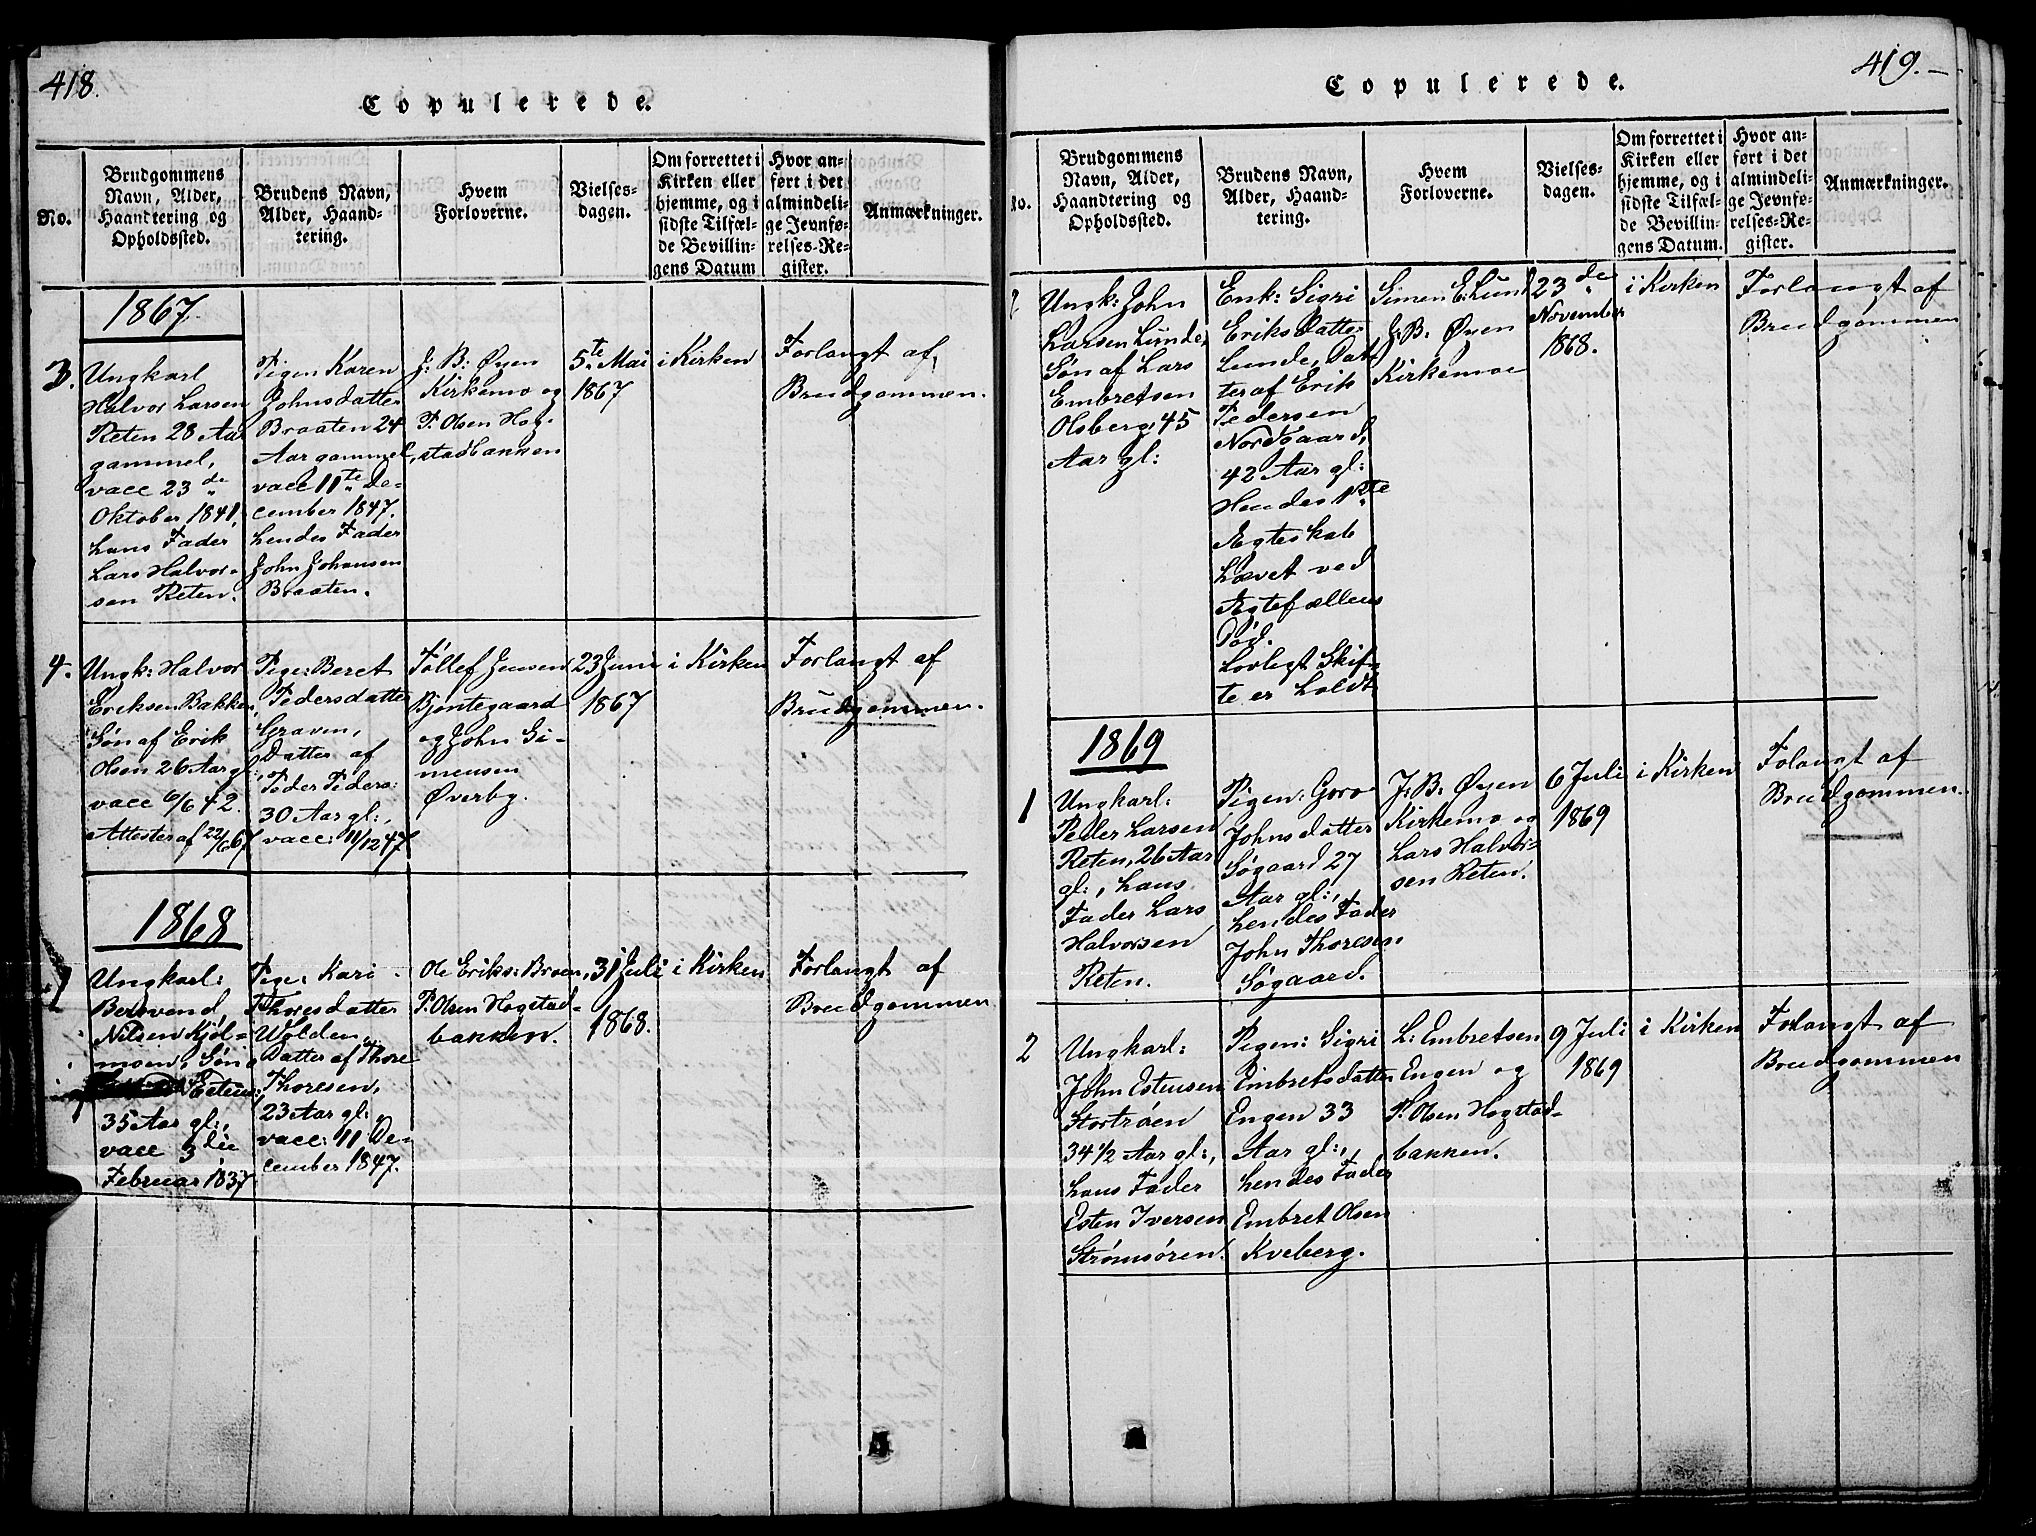 418.
Copulerede.
No.
Brudgommens
Navn, Alder,
Haandtering og
Opholdssted.
Brudens Navn,
Alder, Haand-
tering.
Hvem
Forloverne.
Vielses-
dagen.
Om forrettet i
Kirken eller
hjemme, og i
sidste Tilfæl-
de Bevillin-
gens Datum
Hvor an-
ført i det
almindeli-
ge Jevnfø-
relses-Re-
gister.
Anmærkninger.
1867.
3.
Ungkarl
Halvor Larsen
Reten 28 Aar
gammel,
vacc 23de
Oktober 1841,
hans Fader
Lars Halvor-
sen Reten.
Pigen Karen
Johnsdatter
Braaten 24
Aar gammel,
vacc 11te De-
cember 1847.
hendes Fader
John Johansen
Braaten.
J: B: Øyen
Kirkemo og
P. Olsen Hog-
stadbakken
5te Mai
1867
i Kirken
Forlangt af
Brudgommen.
4.
Ungk: Halvor
Eriksen Bakken,
Søn af Erik
Olsen 26 Aar gl:,
vacc 6/6 42.
Attester af 22/6 67
Pige: Beret
Pedersdatter
Graven,
Datter af
Peder Peders:
30 Aar gl:,
vacc: 11/12 47
Tøllef Jensen
Bjøntegaard
og John Si-
mensen
Øverby.
23 Juni
1867
i Kirken
Forlangt af
Brudgommen.
1868
1
Ungkarl:
Berovend,
Nilsen Kjøl-
moen, Søn
Esten:,
35 Aar gl:,
vacc 3die
Februar 1837
Pige: Kari
Thoresdatter
Wolden,
Datter af Thore
Thoresen,
23 Aar gl:,
vacc: 11 De-
cember 1847.
Ole Eriks: Broen,
P. Olsen Hogstad-
bakken.
31 Juli
1868.
i Kirken
Forlangt af
Brudgommen.
419.
Copulerede.
No.
Brudgommens
Navn, Alder,
Haandtering og
Opholdssted.
Brudens Navn,
Alder, Haand-
tering.
Hvem
Forloverne.
Vielses-
dagen.
Om forrettet i
Kirken eller
hjemme, og i
sidste Tilfæl-
de Bevillin-
gens Datum.
Hvor an-
ført i det
almindeli-
ge Jevnfø-
relses-Re-
gister.
Anmærkninger.
2
Ungk: John
Larsen Lunde,
Søn af Lars
Embretsen
Olsberg, 45
Aar gl:
Enk: Sigri
Eriksdatter
Lunde, Dat
ter af Erik
Pedersen
Nordgaard,
42 Aar gl:
Hendes 1ste
Ægteskab
hævet ved
Ægtefællens
Død.
Lovligt Skif-
te er holdt
Simen E: Lund
J: B: Øyen
Kirkemoe
23de
November
1868.
i Kirken
Forlangt af
Brudgommen
1869
1
Ungkarl:
Peder Larsen
Reten, 26 Aar
gl:, hans
Fader Lars
Halvorsen
Reten.
Pigen: Goro
Johnsdatter
Søgaard 27
Aar gl:,
hendes Fader
John Thoresen
Søgaard.
J: B: Øyen
Kirkemo og
Lars Halvor-
sen Reten.
6 Juli
1869
i Kirken
Folangt af
Brudgommen.
2
Ungkarl:
John Estensen
Stortrøen
34 1/2 Aar gl:,
hans Fader
Esten Iversen
Strømsören.
Pigen: Sigri
Embretsdatter
Engen 33
Aar gl:,
hendes Fader
Embret Olsen
Kveberg.
L: Embretsen
Engen og
P. Olsen Hogstad-
bakken.
9 Juli
1869
i Kirken
Forlangt af
Brudgommen